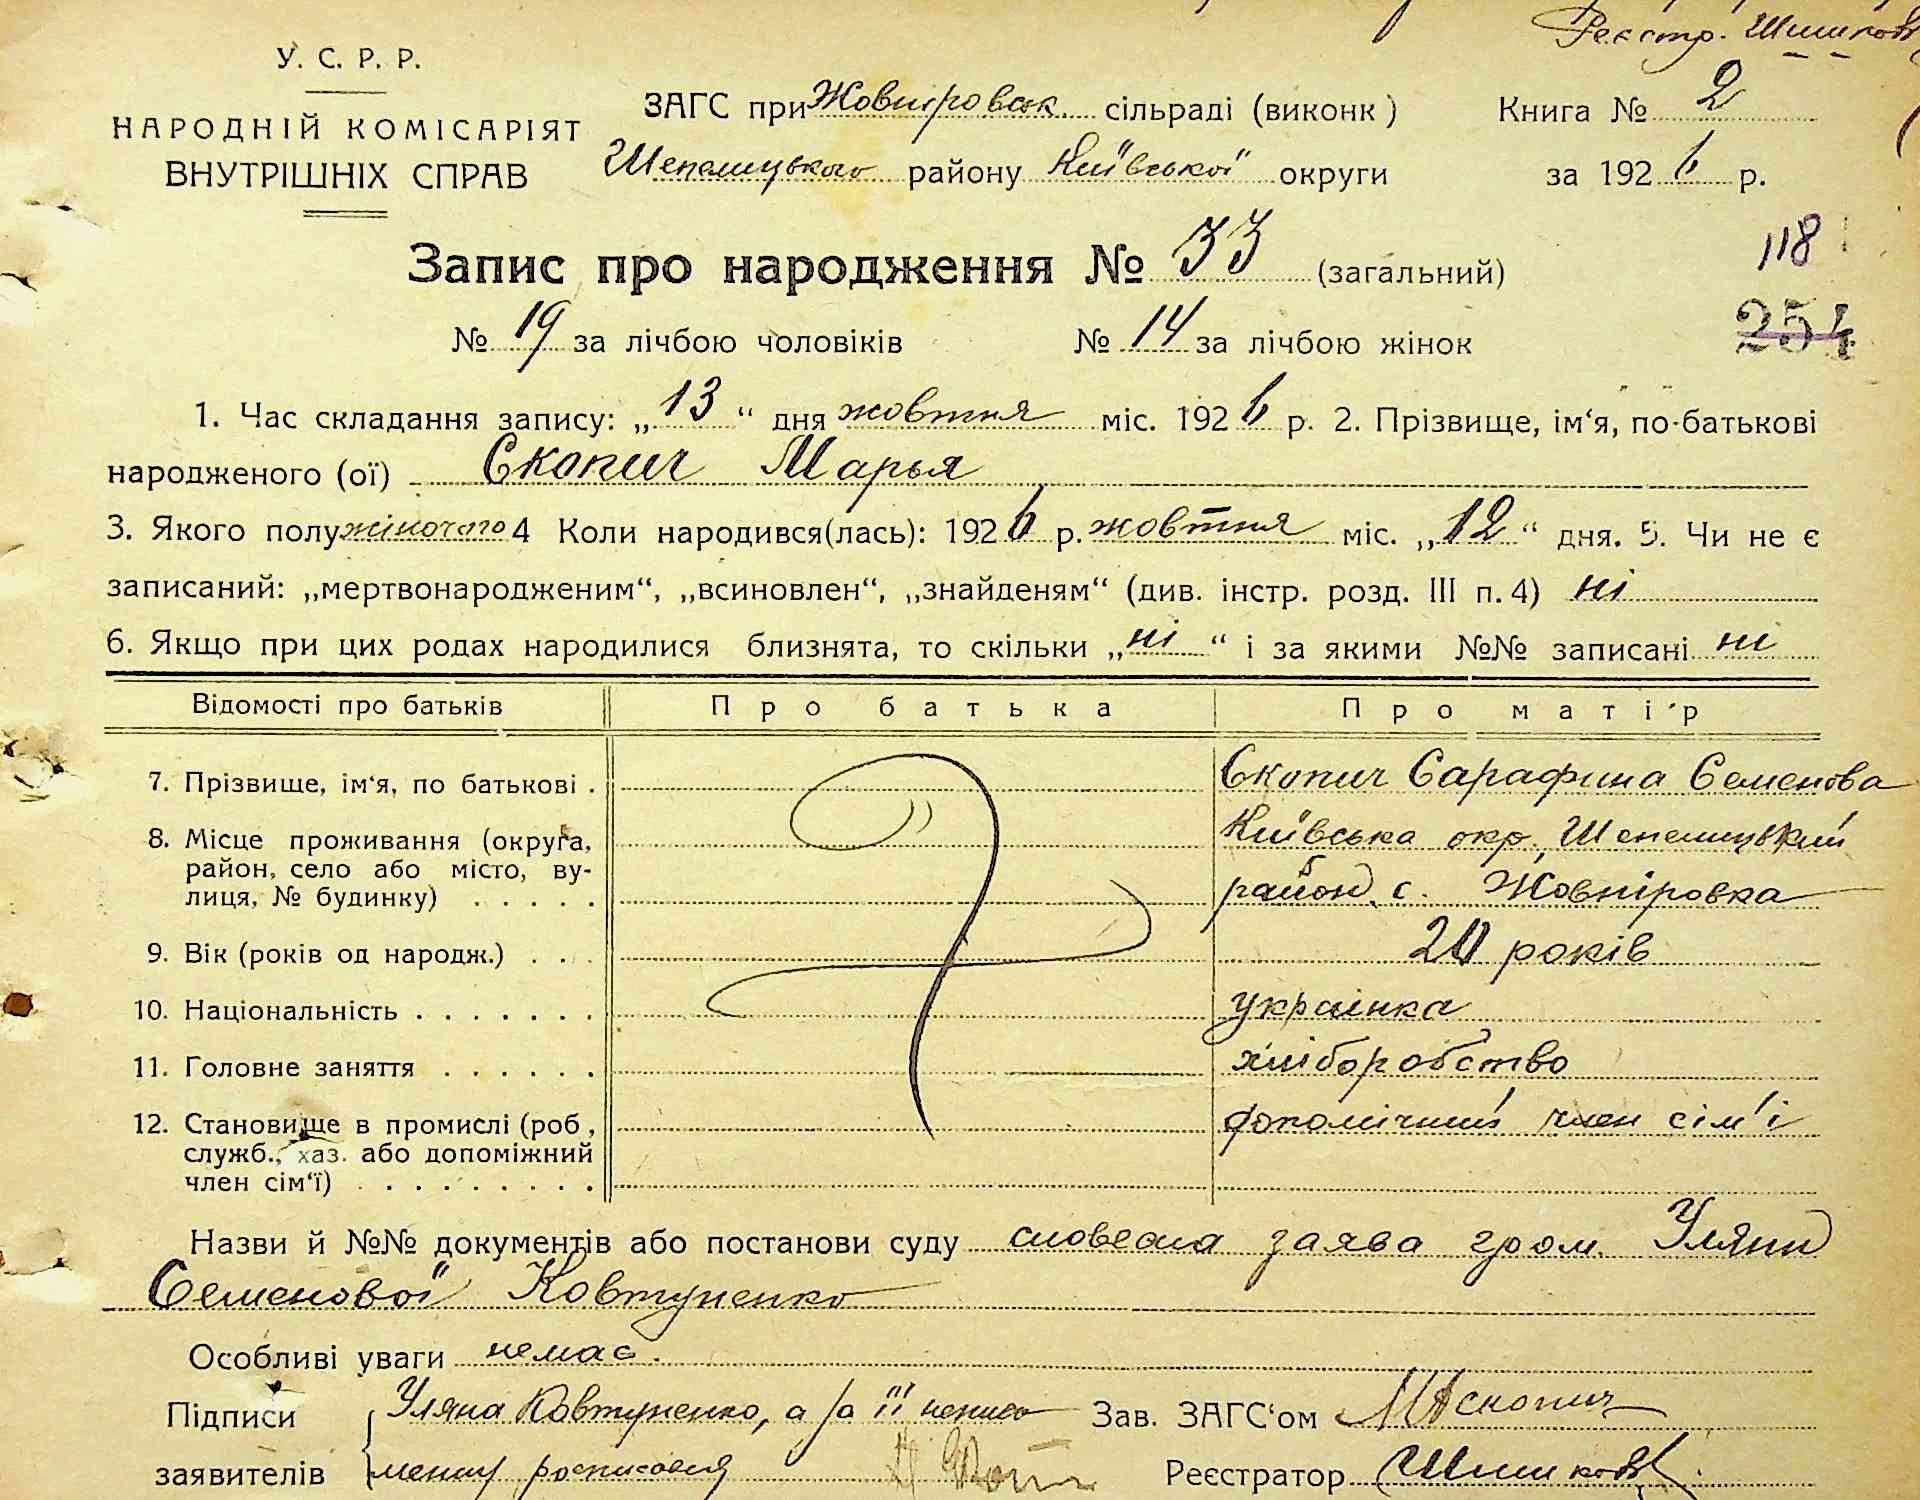 Реєстр. Шишков
У. С. Р. Р.
НАРОДНІЙ КОМІСАРІЯТ
ВНУТРІШНІХ СПРАВ
ЗАГС при Жовніровськ. сільраді (виконк )
Шепелицького району Київської округи
Книга № 2
за 1926 р.
Запис про народження № 33 (загальний)
118
№ 19 за лічбою чоловіків № 14 за лічбою жінок
254
1. Час складання запису: „13 “ дня жовтня міс. 1926 р. 2. Прізвище, ім‘я, по-батькові
народженого (ої) Скопич Марья
3. Якого полу жіночого 4 Коли народився(лась): 1926 р. жовтня міс. „12“ дня. 5. Чи не є
записаний: „мертвонародженим“, „всиновлен“, „знайденям“ (див. інстр. розд. III п. 4) ні
6. Якщо при цих родах народилися близнята, то скільки „ні “ і за якими №№ записані ні
Відомості про батьків Про батька Про маті‘р
7. Прізвище, ім‘я, по батькові . Скопич Сарафина Семенова
8. Місце проживання (округа, Київська окр. Шепелицький
район, село або місто, ву-
лиця, № будинку) . . . . . район, с. Жовніровка
9. Вік (років од народж.) . . . 20 років
10. Національність . . . . . . . украінка
11. Головне заняття . . . . . . хліборобство
12. Становище в промислі (роб, допомічний член сім'ї
служб., хаз. або допоміжний
член сім‘ї) . . . . . . . . .
Назви й №№ документів або постанови суду словесна заява гром. Уляни
Семенової Ковтуненко
Особливі уваги немає.
Підписи Уляна Ковтуненко, а за її неписо Зав. ЗАГС‘ом Скопич
заявителів менну росписався Реєстратор Шишков